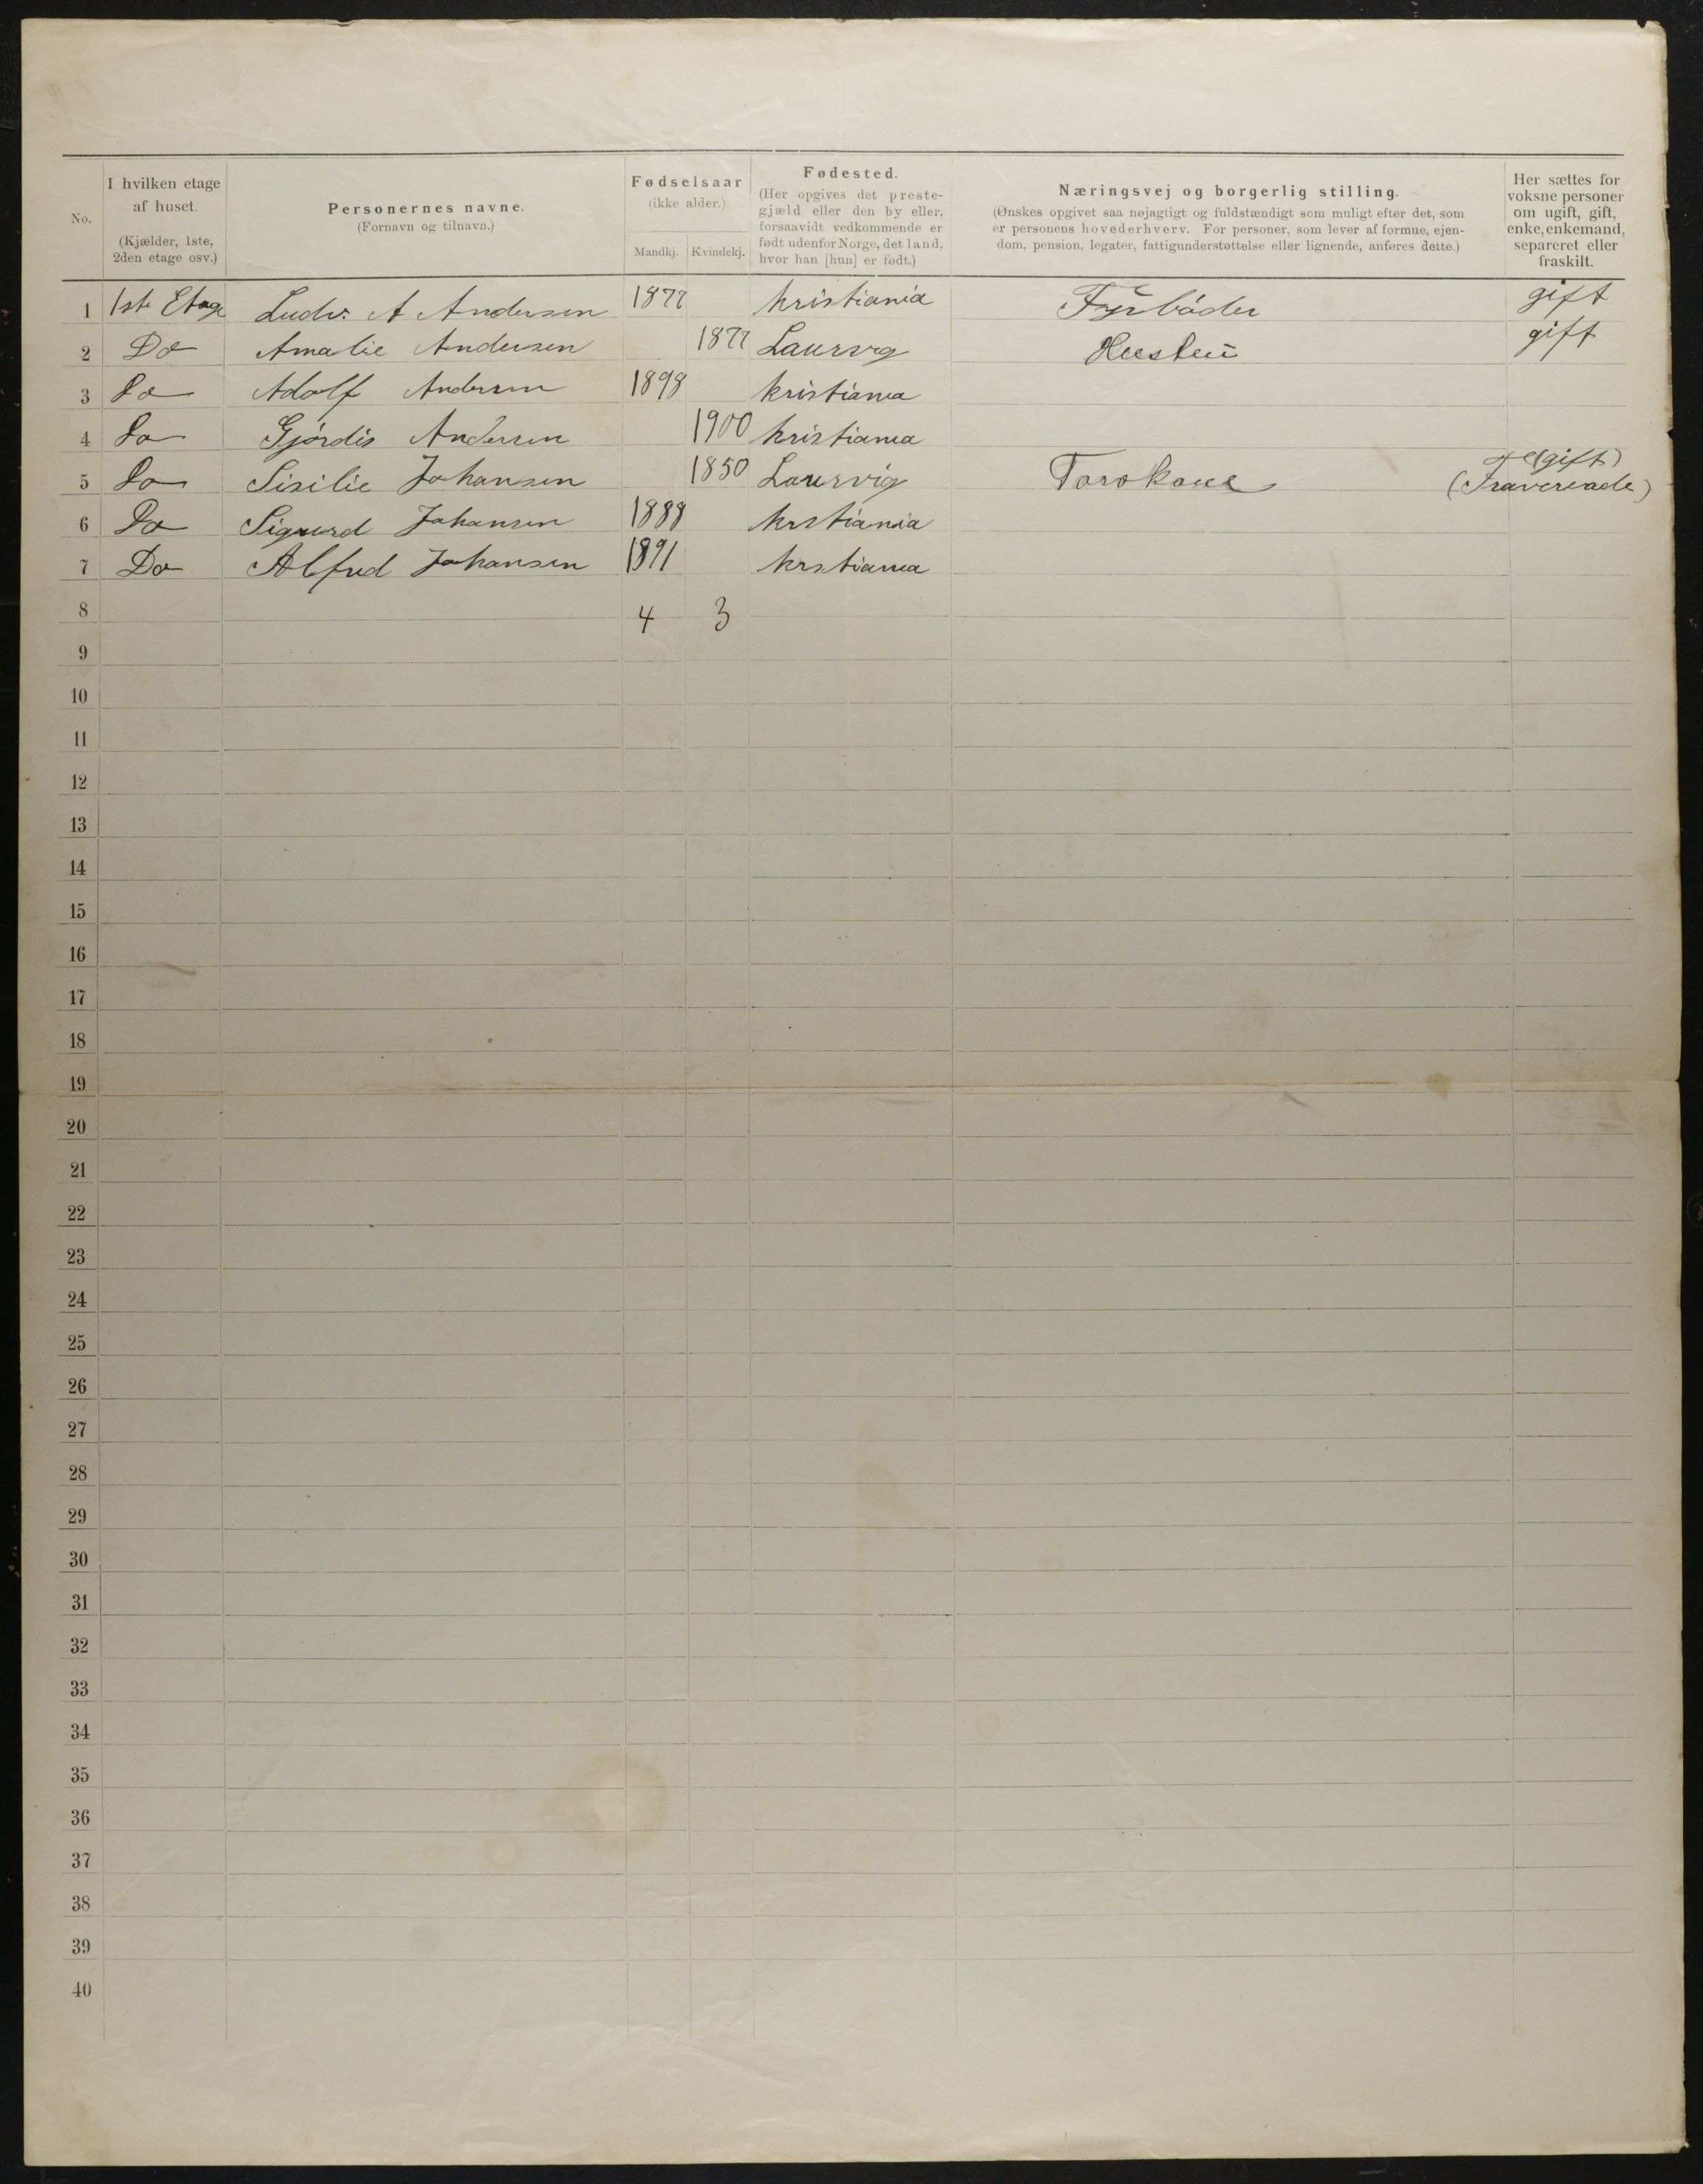 No.
I hvilken etage af huset. (Kjælder, 1ste, 2den etage osv.)
Personernes navne. (Fornavn og tilnavn.)
Fødselsaar (ikke alder.)
Mandkj. Kvindekj.
Fødested. (Her opgives det prestegjæld eller den by eller, forsaavidt vedkommende er født udenfor Norge, det land, hvor han [hun] er født.)
Næringsvej og borgerlig stilling. (Ønskes opgivet saa nøjagtigt og fuldstændigt som muligt efter det, som er personens hovederhverv. For personer, som lever af formue, ejendom, pension, legater, fattigunderstøttelse eller lignende, anføres dette.)
Her sættes for voksne personer om ugift, gift, enke, enkemand, separeret eller fraskilt.
1 1ste Etage Ludv. A Andersen 1877 kristiania Fyrbøder gift
2 Do Amalie Andersen 1877 Laurvig gift
3 Do Adolf Andersen 1898 kristiania
4 Do Gjørdis Andersen 1900 kristiania
5 Do Sisilie Johansen 1850 Laurvig (gift)
6 Do Sigurd Johansen 1888 krstiania
7 Do Alfred Johansen 1891 krstiania
8 4 3
9
10
11
12
13
14
15
16
17
18
19
20
21
22
23
24
25
26
27
28
29
30
31
32
33
34
35
36
37
38
39
40